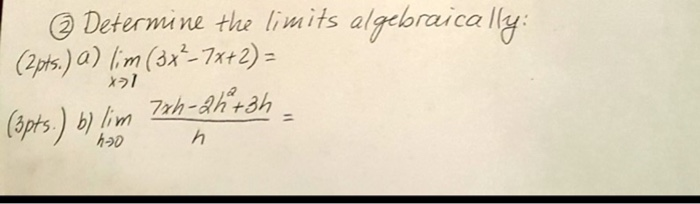 ② Determine the limits algebraically:
(2pts.) a) lim (3x²-7x+2) =
x→1
(3pts.) b) lim 7xh-2h²+3h =
h→0 h